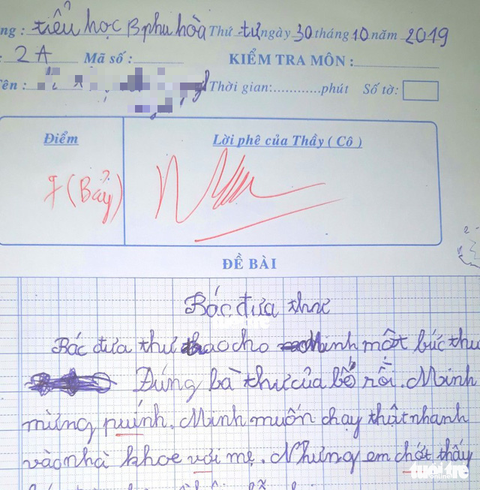 ng : tiểu học B phu hòa Thứ tư ngày 30 tháng 10 năm 2019
: 2 A Mã số : KIỂM TRA MÔN :
Tên : Thời gian:............phút Số tờ:
Điểm Lời phê của Thầy ( Cô )
7 (Bảy)
ĐỀ BÀI
Bác đưa thư
Bác đưa thư trao cho Minh một bức thư
Đúng bà thư của bố rồi. Minh
mừng puính. Minh muốn chạy thật nhanh
vào nhà khoe với mẹ. Nhưng em chớt thấy
tuổi trẻ